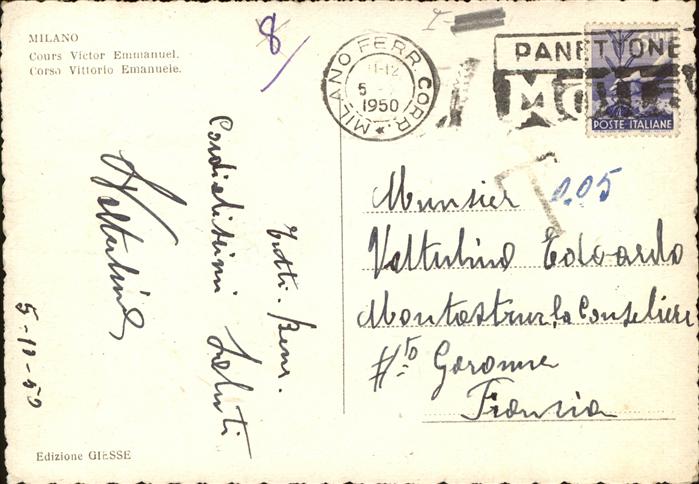 MILANO
Cours Victor Emmanuel.
Corso Vittorio Emanuele.
8/
MILANO FERR. CORR.
11-12
5
1950
PANETTONE
MOTTA
POSTE ITALIANE
T
0.05
Munsier
Valturino Edoardo
Montastruc la Conseliere
Hto Garonne
Francia
Tutti. bene.
Cordialissimi Saluti
5-10-50
Edizione GIESSE